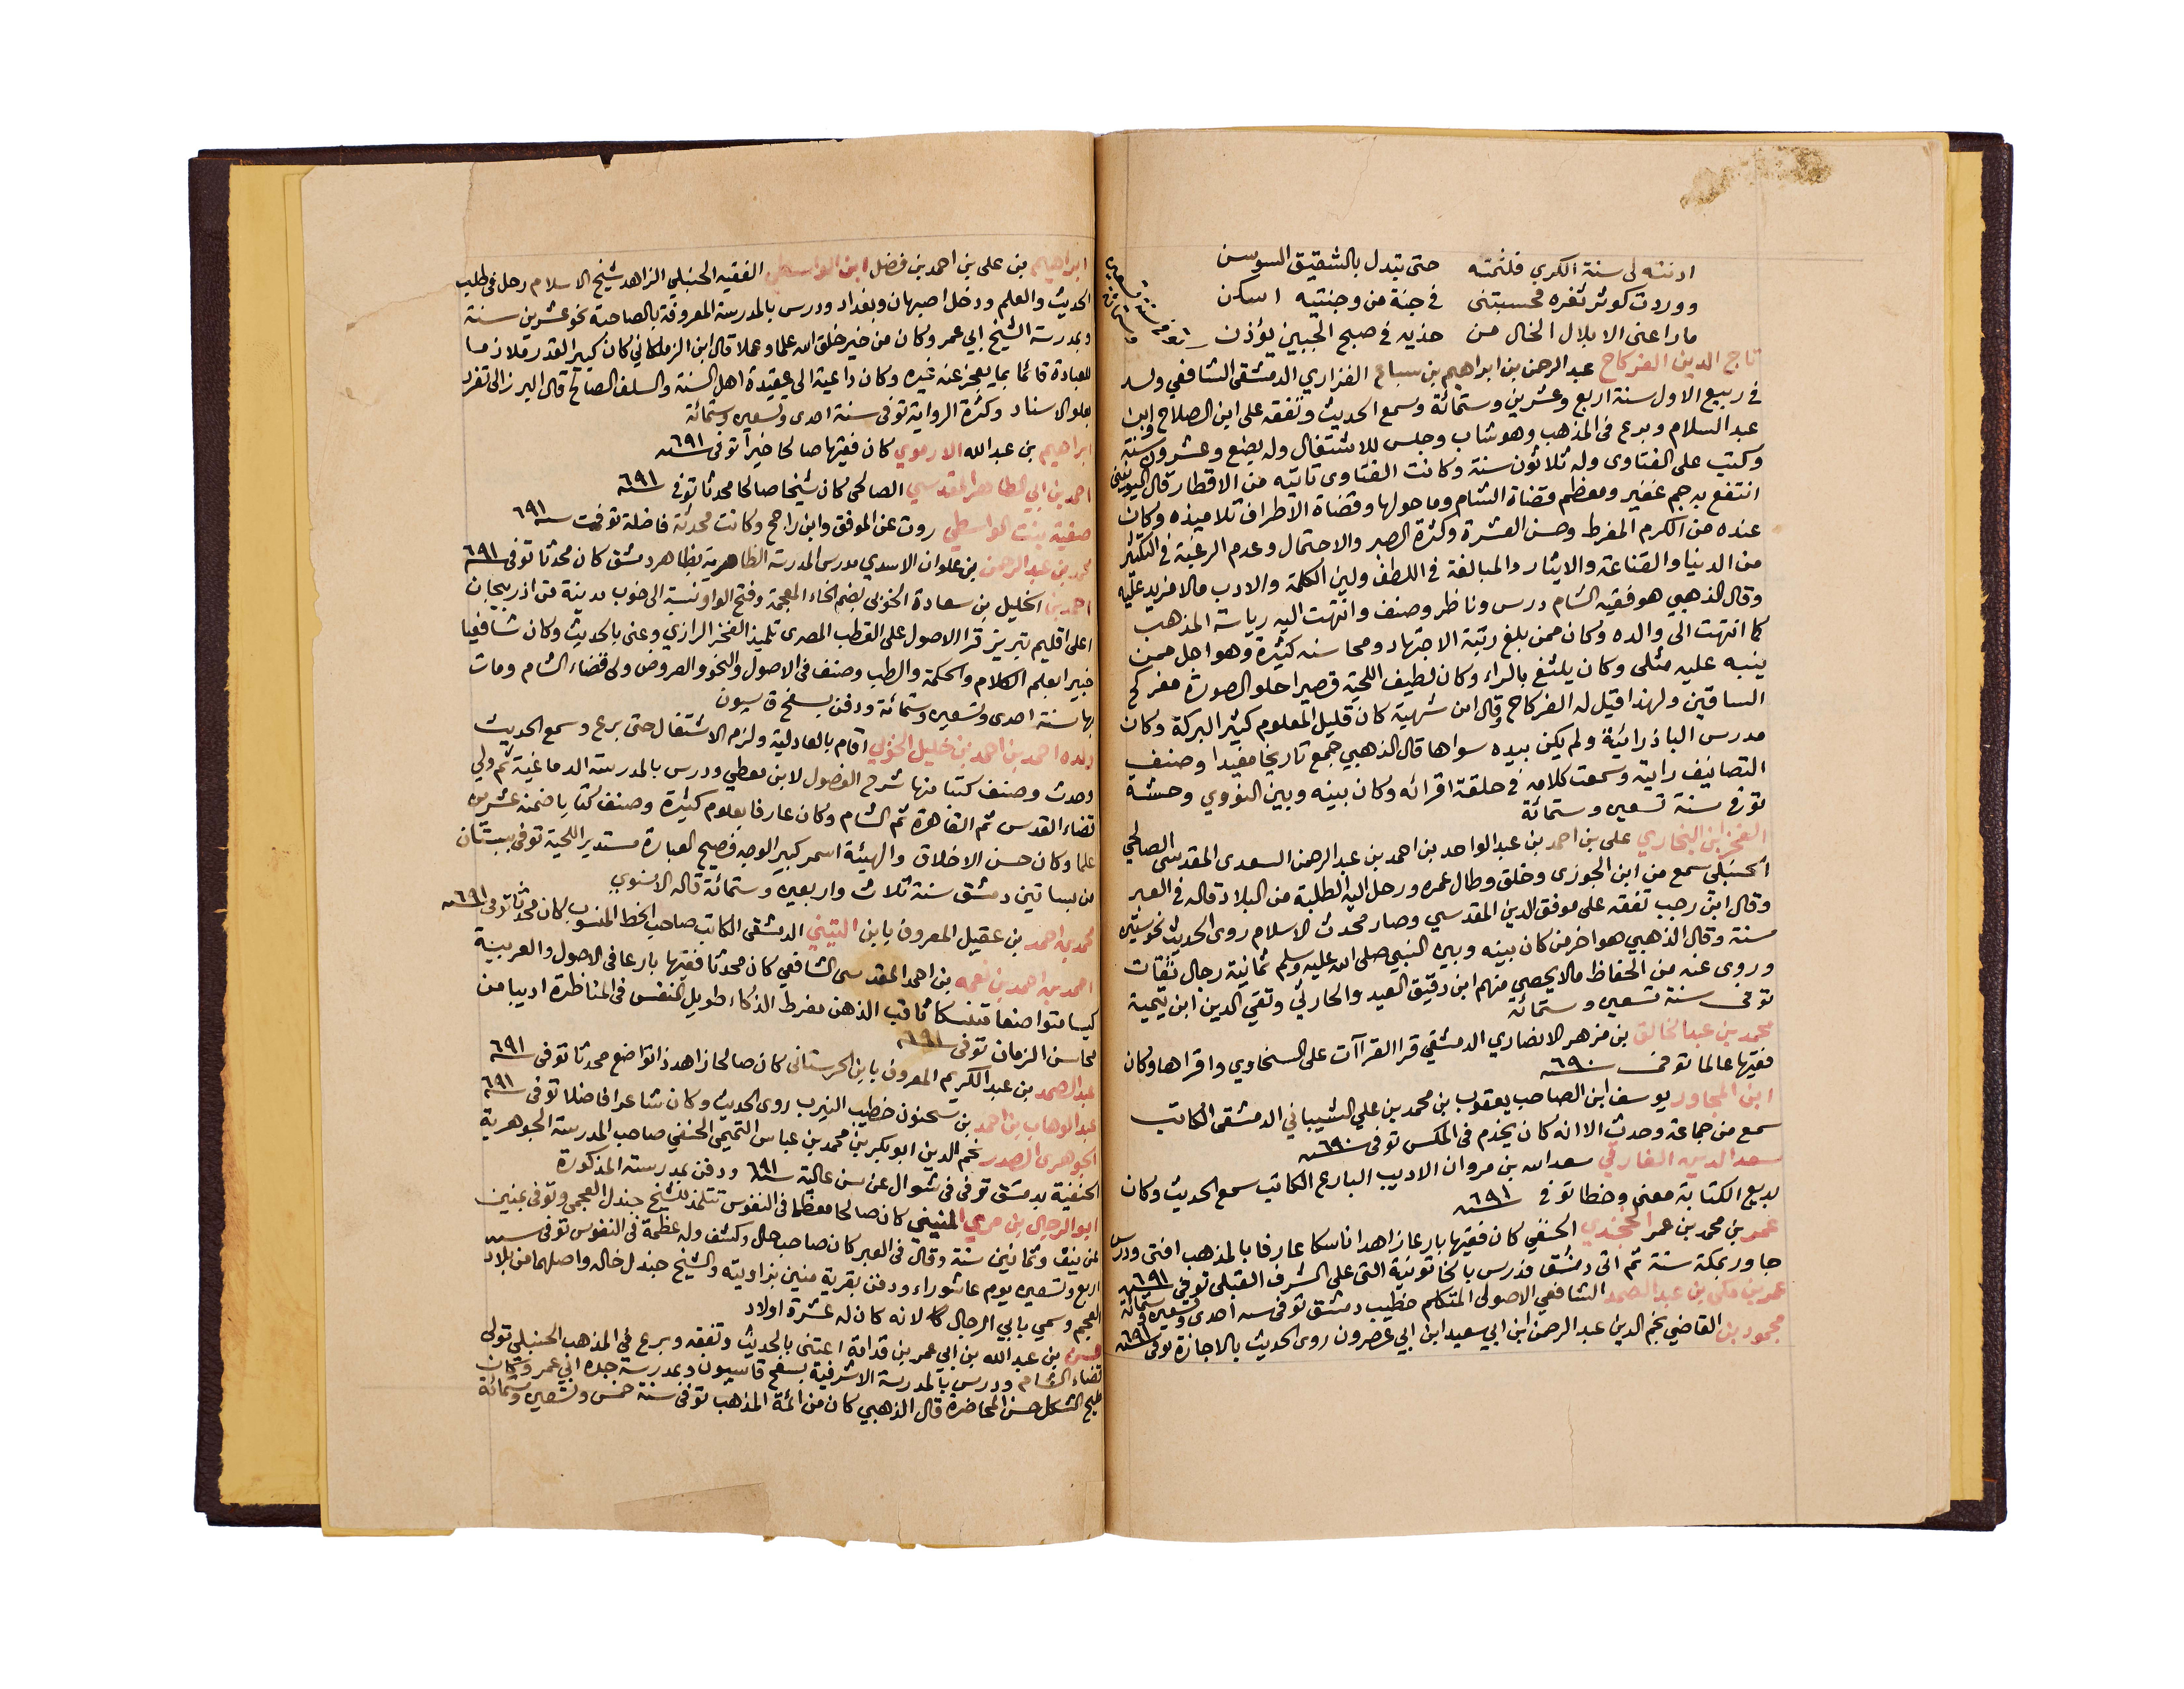 ادنته لى سنة الكرى فلثمته حتى تبدل بالشقيق السوسن
ووردت كوثر ثغره فحسبتنى فى جنة من وجنتيه اسكن
ماراعنى الا بلال الخال من خديه فى صبح الجبين يؤذن
تاج الدين الفركاح عبد الرحمن بن ابراهيم بن سباع الفزاري الدمشقى الشافعي ولد
فى ربيع الاول سنة اربع وعشرين وستمائة وسمع الحديث وتفقه على ابن الصلاح وابن
عبد السلام وبرع فى المذهب وهو شاب وجلس للاشتغال وله بضع وعشرون سنة
وكتب على الفتاوى وله ثلاثون سنة وكانت الفتاوى تاتيه من الاقطار قال اليونينى
انتفع به جم غفير ومعظم قضاة الشام وما حولها وقضاة الاطراف تلاميذه وكان
عنده من الكرم المفرط وحسن العشرة وكثرة الصبر والاحتمال وعدم الرغبة فى التكثير
من الدنيا والقناعة والايثار والمبالغة فى اللطف ولين الكلمة والادب مالا مزيد عليه
وقال الذهبي هو فقيه الشام درس وناظر وصنف وانتهت اليه رياسة المذهب
كما انتهت الى والده وكان ممن بلغ رتبة الاجتهاد ومحاسنه كثيرة وهو اجل ممن
ينبه عليه مثلى وكان يلثغ بالراء وكان لطيف اللحية قصيرا حلو الصورة مفركح
الساقين ولهذا قيل له الفركاح وقال ابن شهبة كان قليل المعلوم كثير البركة وكان
مدرس الباذرائية ولم يكن بيده سواها قال الذهبي جمع تاريخا مفيدا وصنف
التصانيف رايته وسمعت كلامه فى حلقة اقرائه وكان بينه وبين النووي وحشة
توفى سنة تسعين وستمائة
الفخر ابن البخاري على بن احمد بن عبد الواحد بن احمد بن عبد الرحمن السعدى المقدسى الصالحي
الحنبلى سمع من ابن الجوزى وخلق وطال عمره ورحل اليه الطلبة من البلاد قاله فى العبر
وقال ابن رجب تفقه على موفق الدين المقدسي وصار محدث الاسلام روى الحديث نحو ستين
سنة وقال الذهبي هو اخر من كان بينه وبين النبي صلى الله عليه وسلم ثمانية رجال ثقات
وروى عنه من الحفاظ مالا يحصى منهم ابن دقيق العيد والحارثي وتقي الدين ابن تيمية
توفى سنة تسعين وستمائة
محمد بن عبد الخالق بن مزهر الانصاري الدمشقي قرا القراآت على السخاوي واقراها وكان
فقيها عالما توفى سنة ٦٩٠
ابن المجاور يوسف ابن الصاحب يعقوب بن محمد بن علي الشيباني الدمشقى الكاتب
سمع من جماعة وحدث الا انه كان يخدم فى المكس توفى سنة ٦٩٠
سعد الدين الفارقي سعد الله بن مروان الاديب البارع الكاتب سمع الحديث وكان
بديع الكتابة معنى وخطا توفى سنة ٦٩١
عمر بن محمد بن عمر الخجندي الحنفي كان فقيها بارعا زاهدا ناسكا عارفا بالمذهب افتى ودرس
جاور بمكة سنة ثم اتى دمشق فدرس بالخاتونية التى على الشرف القبلى توفى سنة ٦٩١
عمر بن مكى بن عبد الصمد الشافعي الاصولى المتكلم خطيب دمشق توفى سنة احدى وتسعين وستمائة
محمود بن القاضي نجم الدين عبد الرحمن ابن ابي سعيد ابن ابي عصرون روى الحديث بالاجازة توفى سنة ٦٩١
ابراهيم بن على بن احمد بن فضل ابن الواسطي الفقيه الحنبلي الزاهد شيخ الاسلام رحل فى طلب
الحديث والعلم ودخل اصبهان وبغداد ودرس بالمدرسة المعروفة بالصاحبة نحو عشرين سنة
وبمدرسة الشيخ ابي عمر وكان من خير خلق الله علما وعملا قال ابن الزملكاني كان كبير القدر ملازما
للعبادة قائما بما يعجز عنه غيره وكان داعية الى عقيدة اهل السنة والسلف الصالح قال البرزالى تفرد
بعلو الاسناد وكثرة الرواية توفى سنة احدى وتسعين وستمائة
ابراهيم بن عبد الله الارموي كان فقيها صالحا خيرا توفى سنة ٦٩١
احمد بن ابي الطاهر المقدسي الصالحى كان شيخا صالحا محدثا توفى سنة ٦٩١
صفية بنت الواسطي روت عن الموفق وابن راجح وكانت محدثة فاضلة توفيت سنة ٦٩١
محمد بن عبد الرحمن بن علوان الاسدي مدرس المدرسة الظاهرية بظاهر دمشق كان محدثا توفى سنة ٦٩١
احمد بن الخليل بن سعادة الخويى بضم الخاء المعجمة وفتح الواو نسبة الى خوب مدينة من اذربيجان
اعلى اقليم تبريز قرا الاصول على القطب المصرى تلميذ الفخر الرازي وعنى بالحديث وكان شافعيا
خبيرا بعلم الكلام والحكمة والطب وصنف فى الاصول والنحو والعروض ولى قضاء الشام ومات
بها سنة احدى وتسعين وستمائة ودفن بسفح قاسيون
ولده احمد بن احمد بن خليل الخوبي اقام بالعادلية ولزم الاشتغال حتى برع وسمع الحديث
وحدث وصنف كتبا منها شرح الفصول لابن معطي ودرس بالمدرسة الدماغية ثم ولي
قضاء القدس ثم القاهرة ثم الشام وكان عارفا بعلوم كثيرة وصنف كتابا ضمنه عشرين
علما وكان حسن الاخلاق والهيئة اسمر كبير الوجه فصيح العبارة مستدير اللحية توفى ببستان
من بساتين دمشق سنة ثلاث واربعين وستمائة قاله الاسنوي
محمد بن احمد بن عقيل المعروف بابن التيني الدمشقى الكاتب صاحب الخط المنسوب كان محدثا توفى سنة ٦٩١
احمد بن احمد بن نعمه بن احمد المقدسى الشافعي كان محدثا فقيها بارعا فى الاصول والعربية
كيسا متواضعا متنسكا ثاقب الذهن مفرط الذكاء طويل النفس فى المناظرة اديبا من
محاسن الزمان توفى سنة ٦٩١
عبد الصمد بن عبد الكريم المعروف بابن الحرستانى كان صالحا زاهدا ذا تواضع محدثا توفى سنة ٦٩١
عبد الوهاب بن احمد بن سحنون خطيب النيرب روى الحديث وكان شاعرا فاضلا توفى سنة ٦٩١
الجوهرى الصدر نجم الدين ابو بكر بن محمد بن عباس التميمى الحنفي صاحب المدرسة الجوهرية
الحنفية بدمشق توفى فى شوال عن سن عالية سنة ٦٩١ ودفن بمدرسته المذكورة
ابو الرجال بن مري المنيني كان صالحا معظما فى النفوس تتلمذ للشيخ جندل العجمى وتوفى بمنين
عن نيف وثمانين سنة وقال فى العبر كان صاحب حال وكشف وله عظمة فى النفوس توفى سنة
اربع وتسعين يوم عاشوراء ودفن بقرية منين بزاويته والشيخ جندل خاله واصلهما من بلاد
العجم وسمي بابي الرجال لانه كان له عشرة اولاد
حسن بن عبد الله بن ابي عمر بن قدامة اعتنى بالحديث وتفقه وبرع فى المذهب الحنبلى تولى
قضاء الشام ودرس بالمدرسة الاشرفية بسفح قاسيون وبمدرسة جده ابي عمر وكان
مليح الشكل حسن المحاضرة قال الذهبي كان من ائمة المذهب توفى سنة خمس وتسعين وستمائة